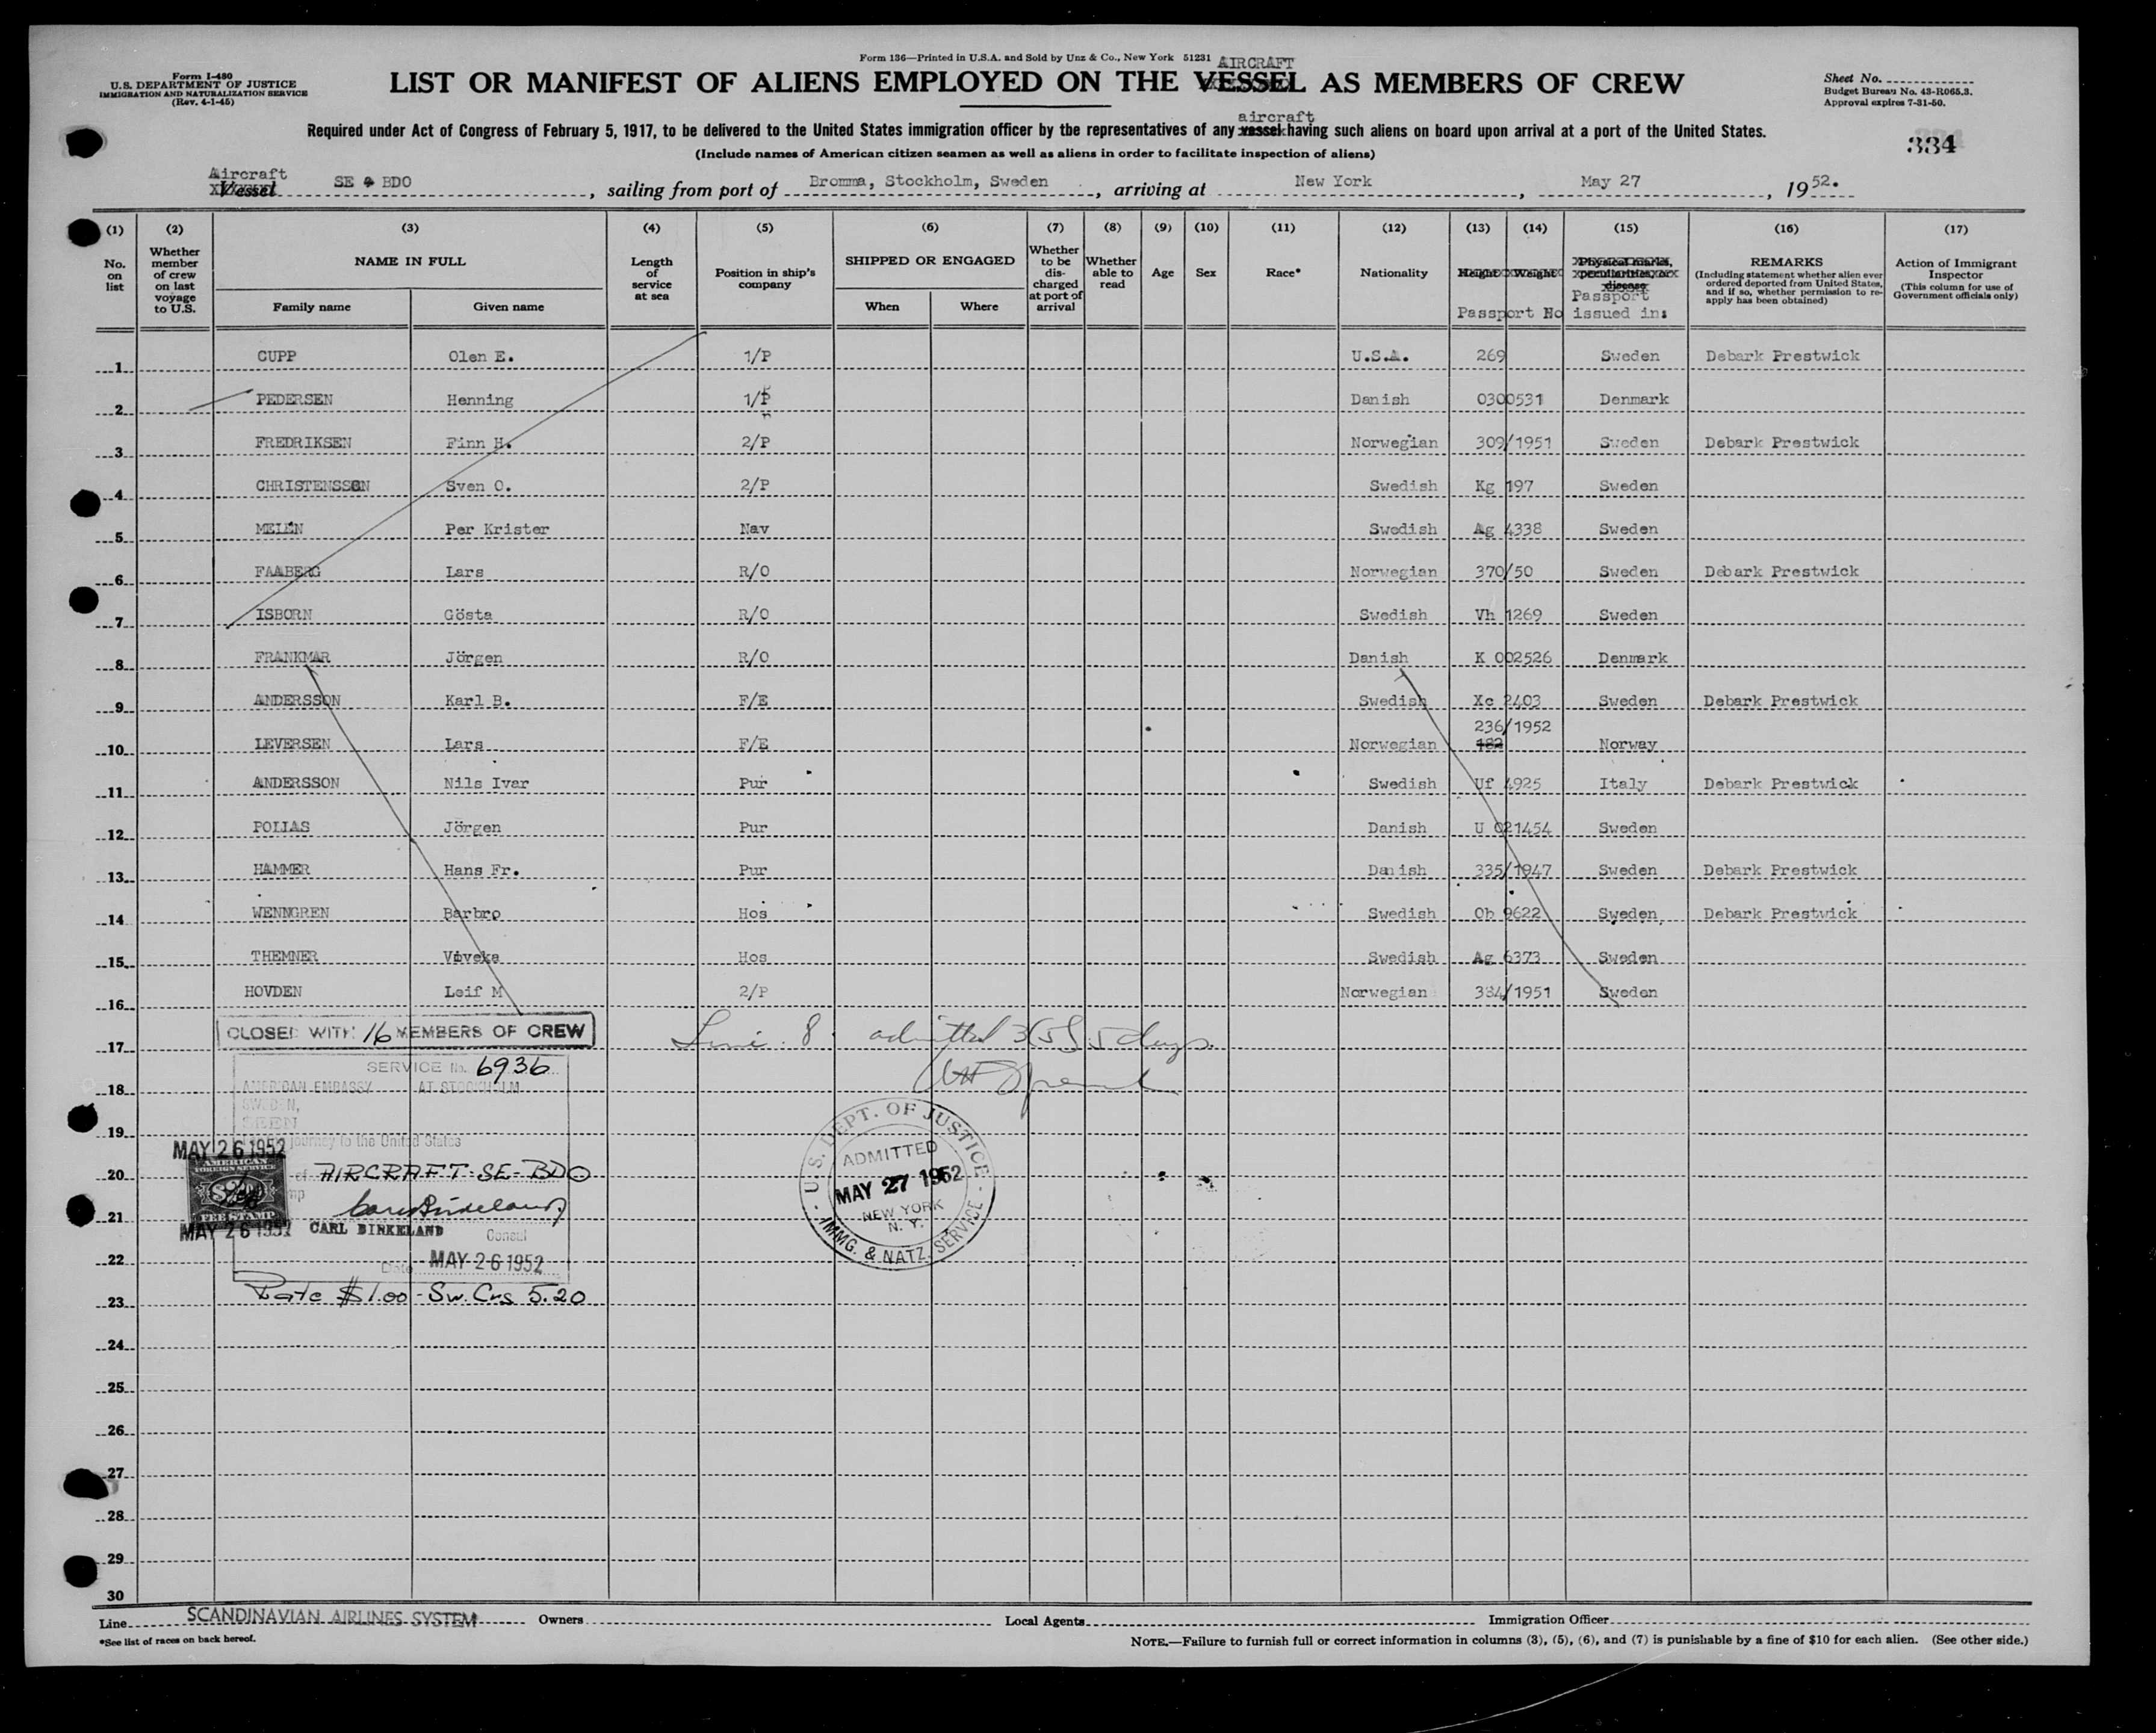 Form 136—Printed in U.S.A. and Sold by Unz & Co., New York 51231
Form I-480
U.S. DEPARTMENT OF JUSTICE
IMMIGRATION AND NATURALIZATION SERVICE
(Rev. 4-1-45)
AIRCRAFT
LIST OR MANIFEST OF ALIENS EMPLOYED ON THE VESSEL AS MEMBERS OF CREW
Sheet No.
Budget Bureau No. 43-R065.3.
Approval expires 7-31-50.
aircraft
Required under Act of Congress of February 5, 1917, to be delivered to the United States immigration officer by the representatives of any vessel having such aliens on board upon arrival at a port of the United States.
(Include names of American citizen seamen as well as aliens in order to facilitate inspection of aliens)
334
Aircraft
Vessel SE BDO, sailing from port of Bromma, Stockholm, Sweden, arriving at New York, May 27, 1952.
(1) (2) (3) (4) (5) (6) (7) (8) (9) (10) (11) (12) (13) (14) (15) (16) (17)
No. on list
Whether member of crew on last voyage to U.S.
NAME IN FULL
Family name Given name
Length of service at sea
Position in ship's company
SHIPPED OR ENGAGED
When Where
Whether to be discharged at port of arrival
Whether able to read
Age
Sex
Race*
Nationality
Height Weight
Passport No
Physical marks, peculiarities, or disease
Passport issued in:
REMARKS
(Including statement whether alien ever ordered deported from United States, and if so, whether permission to re-apply has been obtained)
Action of Immigrant Inspector
(This column for use of Government officials only)
1 CUPP Olen E. 1/P U.S.A. 269 Sweden Debark Prestwick
2 PEDERSEN Henning 1/P Danish 0300531 Denmark
3 FREDRIKSEN Finn H. 2/P Norwegian 309/1951 Sweden Debark Prestwick
4 CHRISTENSSON Sven O. 2/P Swedish Kg 197 Sweden
5 MELÉN Per Krister Nav Swedish Ag 4338 Sweden
6 FAABERG Lars R/O Norwegian 370/50 Sweden Debark Prestwick
7 ISBORN Gösta R/O Swedish Vh 1269 Sweden
8 FRANKMAR Jörgen R/O Danish K 002526 Denmark
9 ANDERSSON Karl B. F/E Swedish Xc 2403 Sweden Debark Prestwick
236/1952
10 LEVERSEN Lars F/E Norwegian 182 Norway
11 ANDERSSON Nils Ivar Pur Swedish Uf 4925 Italy Debark Prestwick
12 POLIAS Jörgen Pur Danish U 021454 Sweden
13 HAMMER Hans Fr. Pur Danish 335/1947 Sweden Debark Prestwick
14 WENNGREN Barbro Hos Swedish Ob 9622 Sweden Debark Prestwick
15 THEMNER Viveka Hos Swedish Ag 6373 Sweden
16 HOVDEN Leif M 2/P Norwegian 334/1951 Sweden
CLOSED WITH 16 MEMBERS OF CREW
Line 8 admitted 3(5) 5 days
17
SERVICE No. 6936
18 AMERICAN EMBASSY AT STOCKHOLM
SWEDEN,
SEEN
19
journey to the United States
MAY 26 1952
AMERICAN
FOREIGN SERVICE
20 of AIRCRAFT-SE-BDO
$2
FEE STAMP
21
MAY 26 1952 CARL BIRKELAND
Consul
22 Date MAY 26 1952
Rate $1.00 - Sw. Crs 5.20
23
U.S. DEPT. OF JUSTICE
ADMITTED
MAY 27 1952
NEW YORK
N. Y.
IMMG. & NATZ. SERVICE
24
25
26
27
28
29
30
Line SCANDINAVIAN AIRLINES SYSTEM Owners Local Agents Immigration Officer
*See list of races on back hereof.
NOTE.—Failure to furnish full or correct information in columns (3), (5), (6), and (7) is punishable by a fine of $10 for each alien. (See other side.)